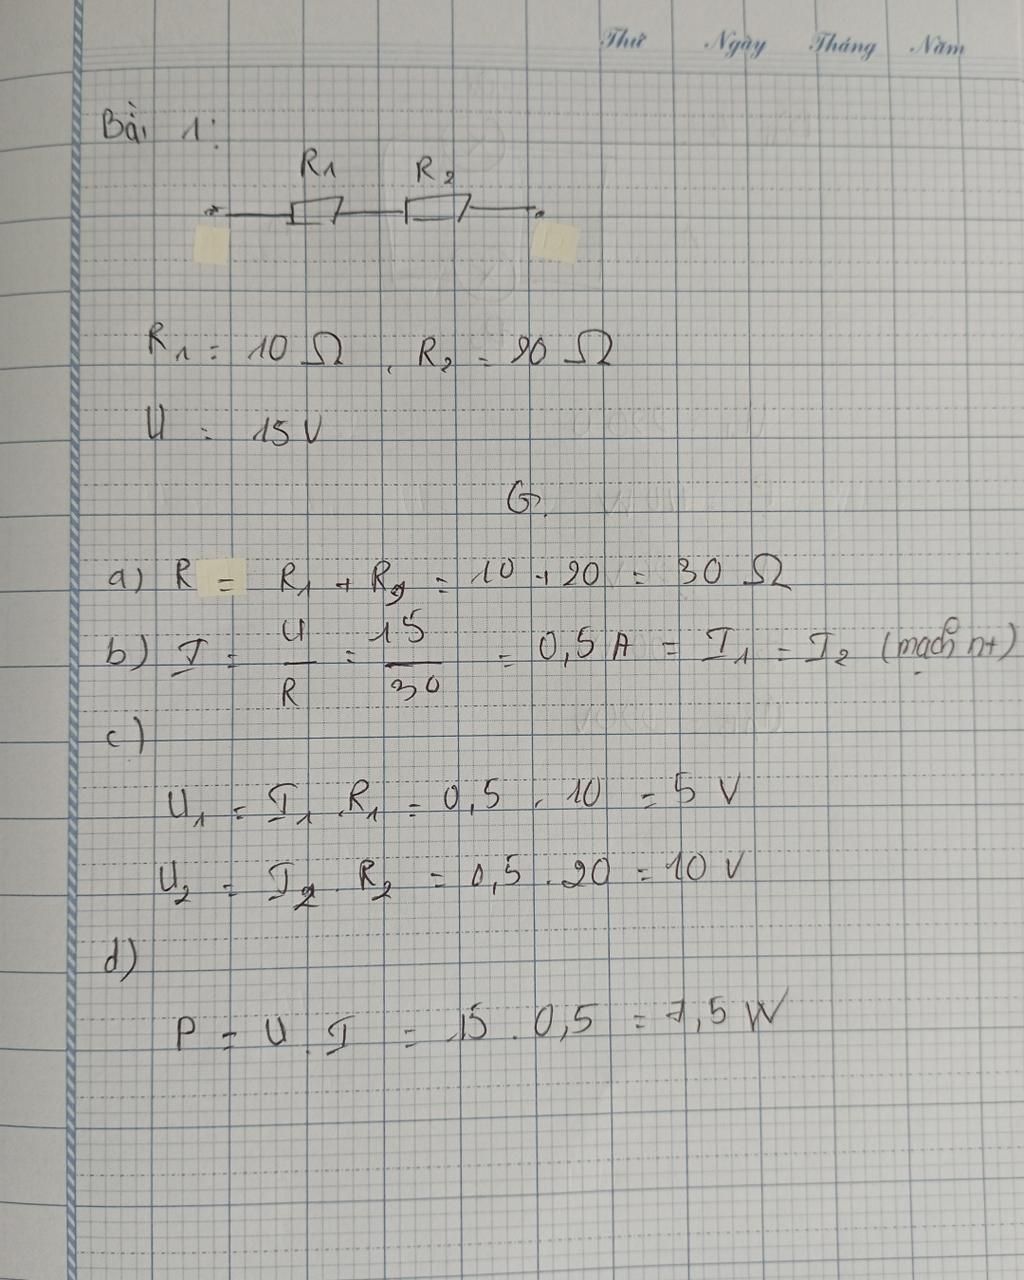 Thứ Ngày Tháng Năm
Bài 1:
R₁ R₂
R₁ = 10 Ω, R₂ = 20 Ω
U = 15V
G.
a) R = R₁ + R₂ = 10 + 20 = 30 Ω
b) I = U/R = 15/30 = 0,5 A = I₁ = I₂ (mạch nt)
c)
U₁ = I₁.R₁ = 0,5 . 10 = 5 V
U₂ = I₂.R₂ = 0,5 . 20 = 10 V
d)
P = U.I = 15 . 0,5 = 7,5 W